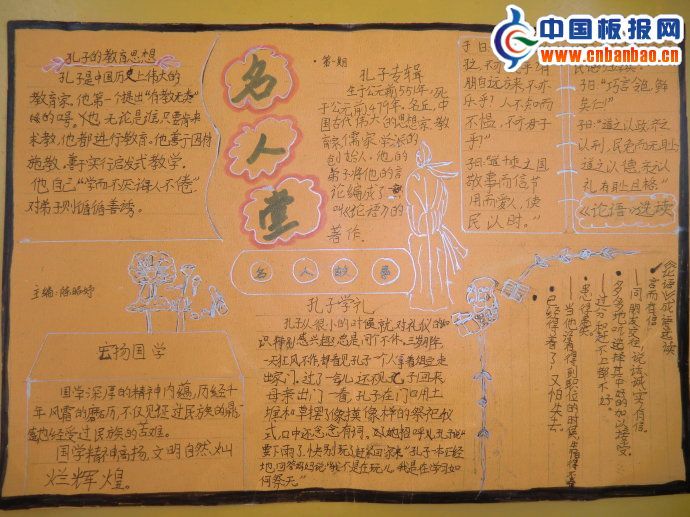 中国板报网
www.cnbanbao.cn
孔子的教育思想
孔子是中国历史上伟大的
教育家,他第一个提出"有教无类"
无论是谁,只要肯来
求教,他都进行教育。他善于因材
施教,善于实行启发式教学。
他自己"学而不厌,诲人不倦"
对弟子则循循善诱。
名
人
堂
第一期
孔子专辑
生于公元前551年,死
于公元前479年。名丘,中
国古代伟大的思想家,教
育家,儒家学派的
创始人。他的
弟子将他的言
论编成了
叫《论语》的
著作。
朋自远方来,不亦
乐乎?人不知而
不愠,不亦君子
乎"
子曰:"道千乘之国
敬事而信,节
用而爱人,使
民以时。"
子曰:"巧言令色,鲜
矣仁"
子曰:"道之以政,齐之
以刑,民免而无耻;
道之以德,齐之以
礼,有耻且格。"
《论语》选读
主编:
弘扬国学
国学深厚的精神内蕴,历经千
年风霜的磨历,不仅见证过民族的鼎
盛,也经受过民族的苦难。
国学精神高扬,文明自然灿
烂辉煌。
名人故事
孔子学礼
孔子从很小的时候就对礼仪的知
识特别感兴趣,总是问个不休。
一天狂风不作,母看见孔子一个人拿着
出家门。过了一会儿还不见孔子回来,
母亲出门一看,孔子在门口用土
堆和草摆像模像样的祭祀仪
式,口中还念念有词。
要下雨了,快别玩了,赶紧回家来"孔子一本正经
地回答妈妈说"我不是在玩儿,我是在学习如
何祭天"
《论语》成语选读
言而有信
同朋友交往,说话诚实有信。
多多地听,选择其中好的加以接受。
过分和赶不上都不好。
患得患失
当他没有得到职位的时候,生怕得不
已经得着了,又怕失去